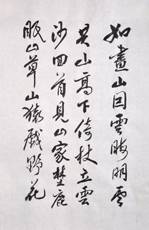 如畫山因雲晦明雲
共山高下倚杖立雲
沙回首見山家埜鹿
眠山草山猿戲野花